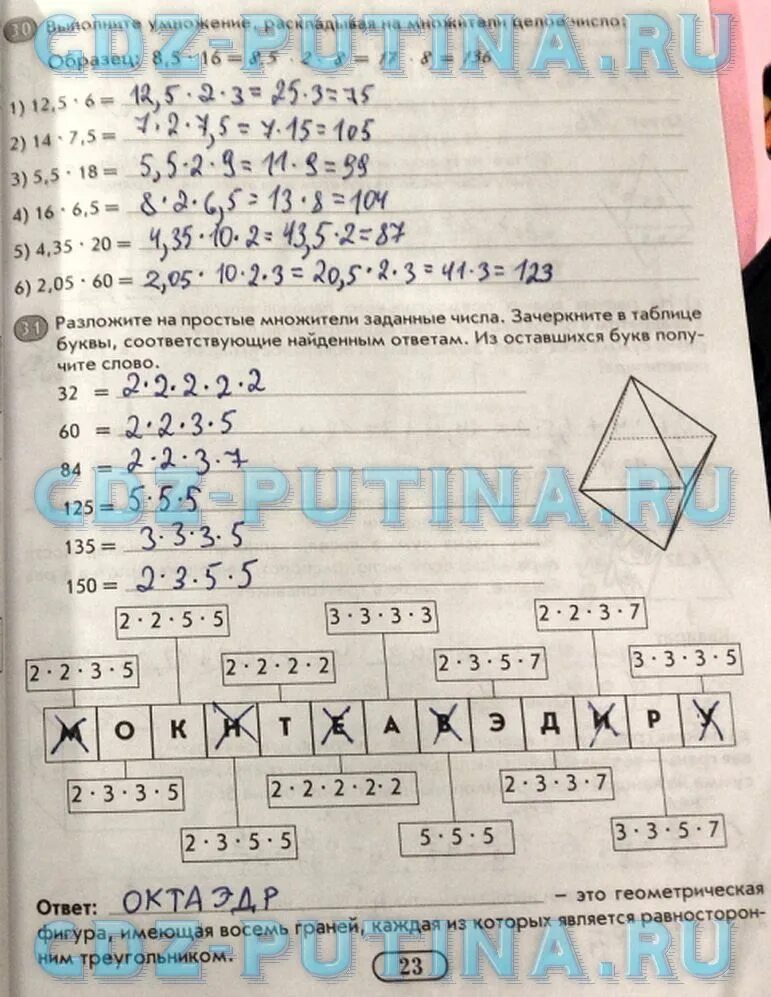 30 Выполните умножение, раскладывая на множители целое число:
Образец: 8,5 · 16 = 8,5 · 2 · 8 = 17 · 8 = 136
1) 12,5 · 6 = 12,5 · 2 · 3 = 25 · 3 = 75
2) 14 · 7,5 = 7 · 2 · 7,5 = 7 · 15 = 105
3) 5,5 · 18 = 5,5 · 2 · 9 = 11 · 9 = 99
4) 16 · 6,5 = 8 · 2 · 6,5 = 13 · 8 = 104
5) 4,35 · 20 = 4,35 · 10 · 2 = 43,5 · 2 = 87
6) 2,05 · 60 = 2,05 · 10 · 2 · 3 = 20,5 · 2 · 3 = 41 · 3 = 123
31 Разложите на простые множители заданные числа. Зачеркните в таблице
буквы, соответствующие найденным ответам. Из оставшихся букв полу-
чите слово.
32 = 2 · 2 · 2 · 2 · 2
60 = 2 · 2 · 3 · 5
84 = 2 · 2 · 3 · 7
GDZ-PUTINA.RU
125 = 5 · 5 · 5
135 = 3 · 3 · 3 · 5
150 = 2 · 3 · 5 · 5
2 · 2 · 5 · 5 3 · 3 · 3 · 3 2 · 2 · 3 · 7
2 · 2 · 3 · 5 2 · 2 · 2 · 2 2 · 3 · 5 · 7 3 · 3 · 3 · 5
М О К Н Т Е А В Э Д И Р У
2 · 3 · 3 · 5 2 · 2 · 2 · 2 · 2 2 · 3 · 3 · 7
2 · 3 · 5 · 5 5 · 5 · 5 3 · 3 · 5 · 7
Ответ: ОКТАЭДР – это геометрическая
фигура, имеющая восемь граней, каждая из которых является равносторон-
ним треугольником.
23
GDZ-PUTINA.RU
GDZ-PUTINA.RU